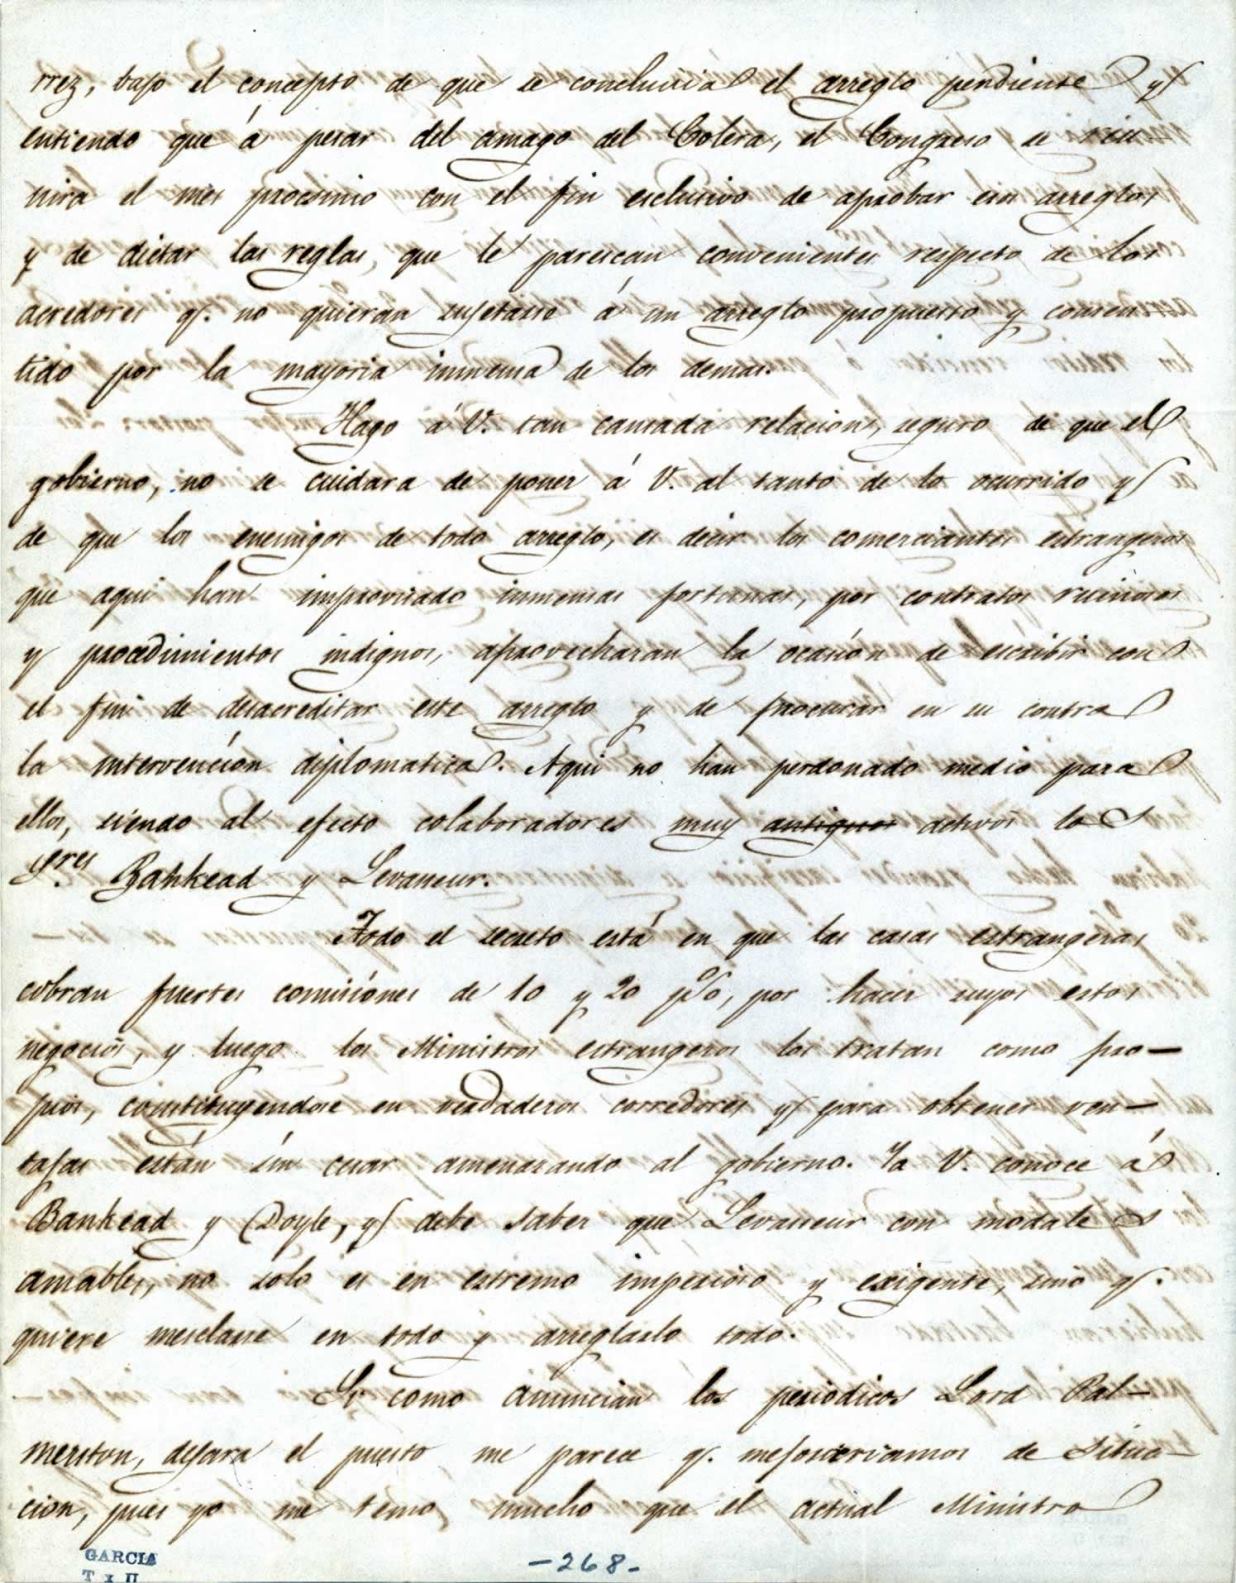 rrez, bajo el concepto de que se concluiria el arreglo pendiente y
entiendo que á pesar del amago del Colera, el Congreso se reu
nira el mes procsimo con el fin esclusivo de aprobar esos arreglos
y de dictar las reglas, que le parescan convenientes respecto de los
acredores q. no quieran sujetarse á un arreglo propuesto y consen
tido por la mayoria inmensa de los demas.
Hago á V. tan cansada relacion, seguro de que el
gobierno, no se cuidara de poner á V. al tanto de lo ocurrido y
de que los enemigos de todo arreglo, es decir los comerciantes estrangeros
que aqui han improvisado inmensas fortunas, por contratos ruinosos
y procedimientos indignos, aprovecharan la ocasión de escribir con
el fin de desacreditar este arreglo y de procurar en su contra
la intervención diplomatica. Aqui no han perdonado medio para
ellos, siendo al efecto colaboradores muy antiguos activos los
Sres Bankead y Levasseur.
Todo el secreto está en que las casas estrangeras
cobran fuertes comisiónes de 10 y 20 p%, por hacer suyos estos
negocios, y luego los Ministros estrangeros los tratan como pro—
pios, constituyendose en verdaderos corredores y para obtener ven—
tajas están sin cesar amenazando al gobierno. Ya V. conoce á
Bankead y Doyle, y debe saber que Levasseur con modales
amables, no solo es en estremo imperioso y exigente, sinó q.
quiere mesclarse en todo y arreglarlo todo.
Si como anuncian los periodicos Lord Pal—
merston, dejara el puesto me parece q. mejorariamos de situa—
cion, pues yo me temo mucho que el actual Ministro
GARCIA
T x II
-268-